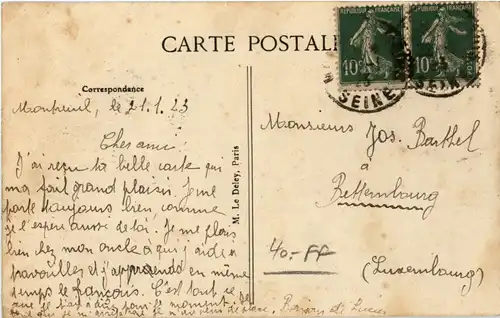 CARTE POSTALE
REPUBLIQUE FRANÇAISE
10c
10c
SEINE
SEINE
Correspondance
Montreuil, le 21.1.23
Cher ami!
J'ai reçu ta belle carte qui
m'a fait grand plaisir. Je me
porte toujours bien, comme
je l'espère aussi de toi. Je me plais
bien chez mon oncle à qui j'aide à
travailler et j'apprends en même
temps le français. C'est tout ce
que je pour le moment.
je n'ai plus de place. Bonjour de Lucien
M. Le Deley, Paris
Monsieur Jos. Barthel
à
Bettembourg
(Luxembourg)
40.-FF